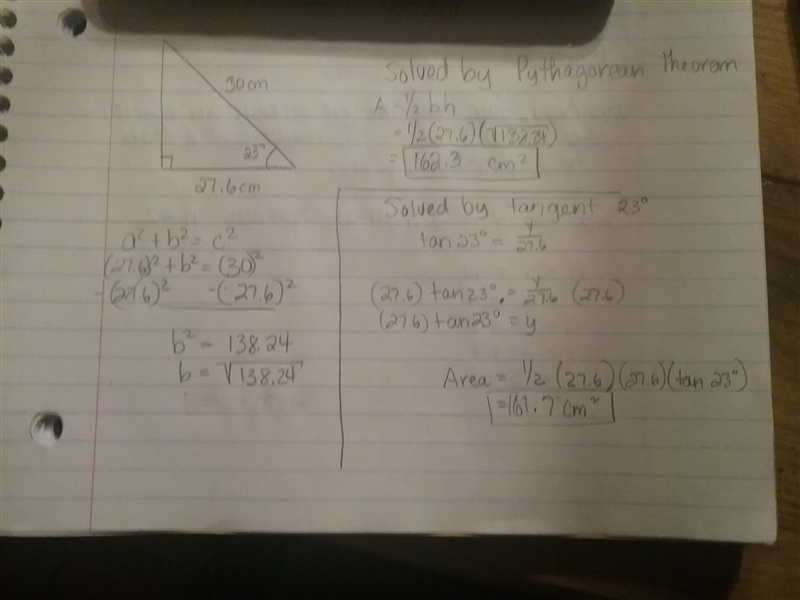 30cm
23°
27.6cm
a² + b² = c²
(27.6)² + b² = (30)²
-(27.6)² -(27.6)²
b² = 138.24
b = √138.24
Solved by Pythagorean theorem
A = 1/2 bh
= 1/2 (27.6)(√138.24)
= 162.3 cm²
Solved by tangent 23°
tan 23° = y/27.6
(27.6) tan 23° = y/27.6 (27.6)
(27.6) tan 23° = y
Area = 1/2 (27.6)(27.6)(tan 23°)
= 161.7 cm²